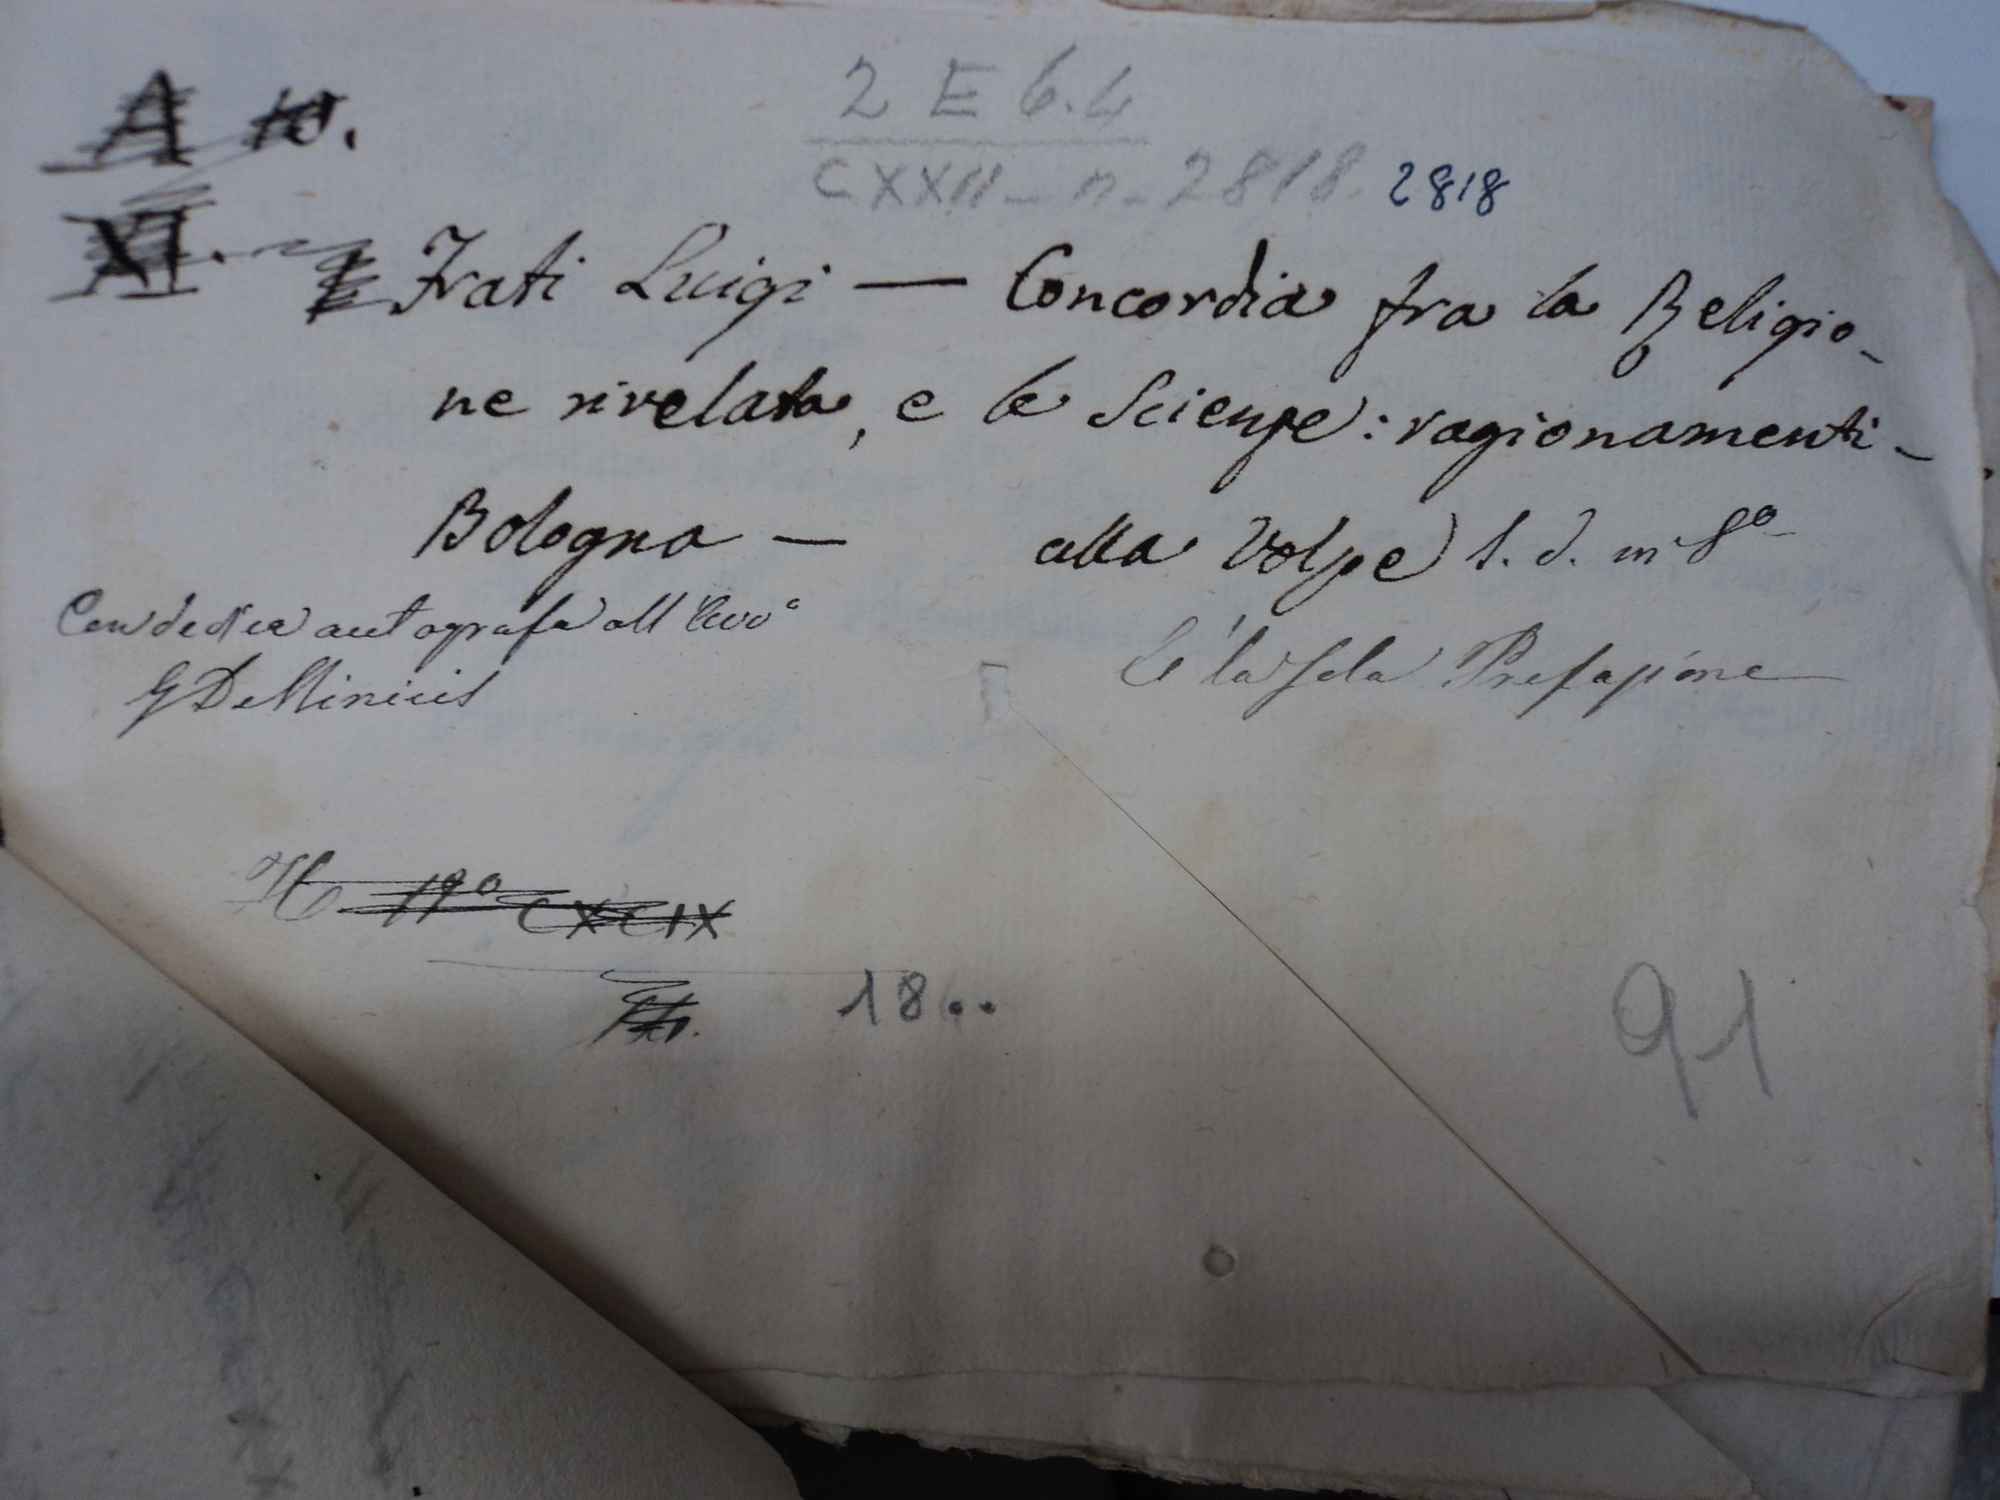 2 E 6.4
A 10.
CXXII - n. 2818. 2818
XI.
Frati Luigi — Concordia fra la Religio-
ne rivelata, e le Scienze: ragionamenti -
Bologna — alla Volpe s. d. in 8º
Con dedica autografa all'Avvº
G De Minicis
È la sola Prefazione
H 19º CXCIX
18..
91